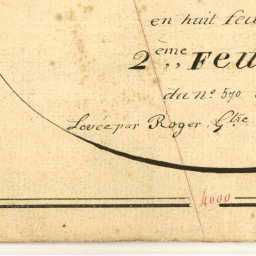 en huit feu
2ème Feu
du nº 570
Levée par Roger, Gtre
4000